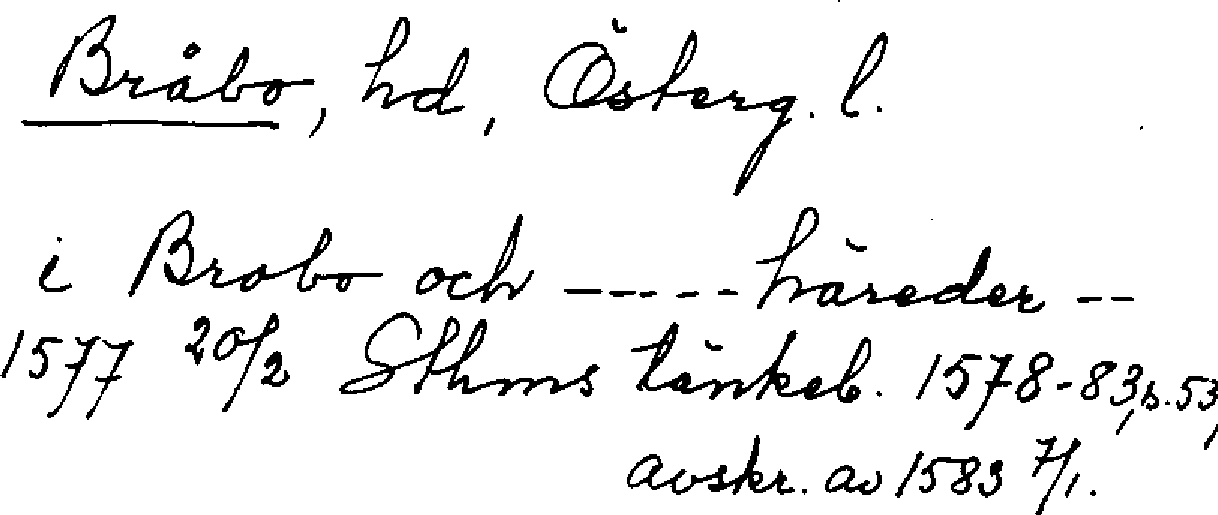 Bråbo, hd, Österg. l.
i Brobo och ----- häreder --
1577 20/2 Sthms tänkeb. 1578-83, s. 53,
avskr. av 1583 7/1.